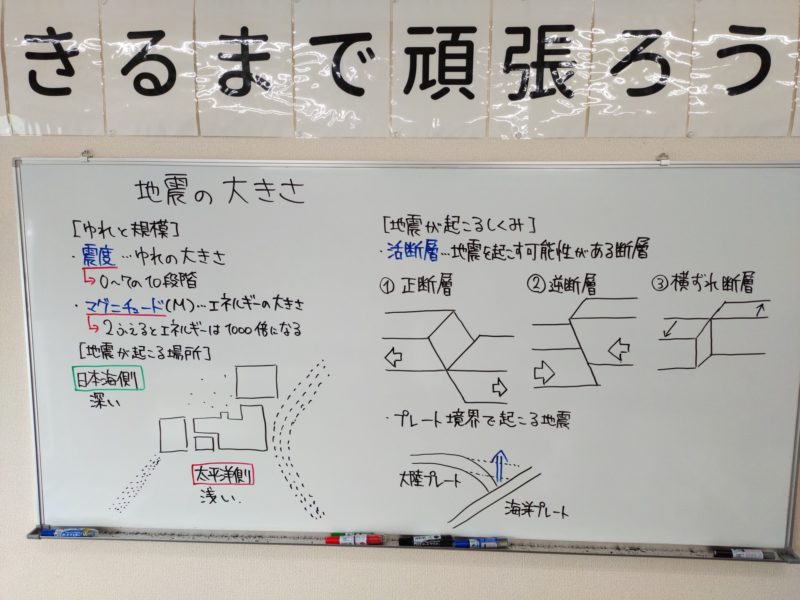 きるまで頑張ろう
地震の大きさ
[ゆれと規模]
・震度…ゆれの大きさ
0〜7の10段階
・マグニチュード(M)…エネルギーの大きさ
2ふえるとエネルギーは1000倍になる
[地震が起こる場所]
日本海側
深い
太平洋側
浅い
[地震が起こるしくみ]
・活断層…地震を起こす可能性がある断層
①正断層
②逆断層
③横ずれ断層
・プレート境界で起こる地震
大陸プレート
海洋プレート